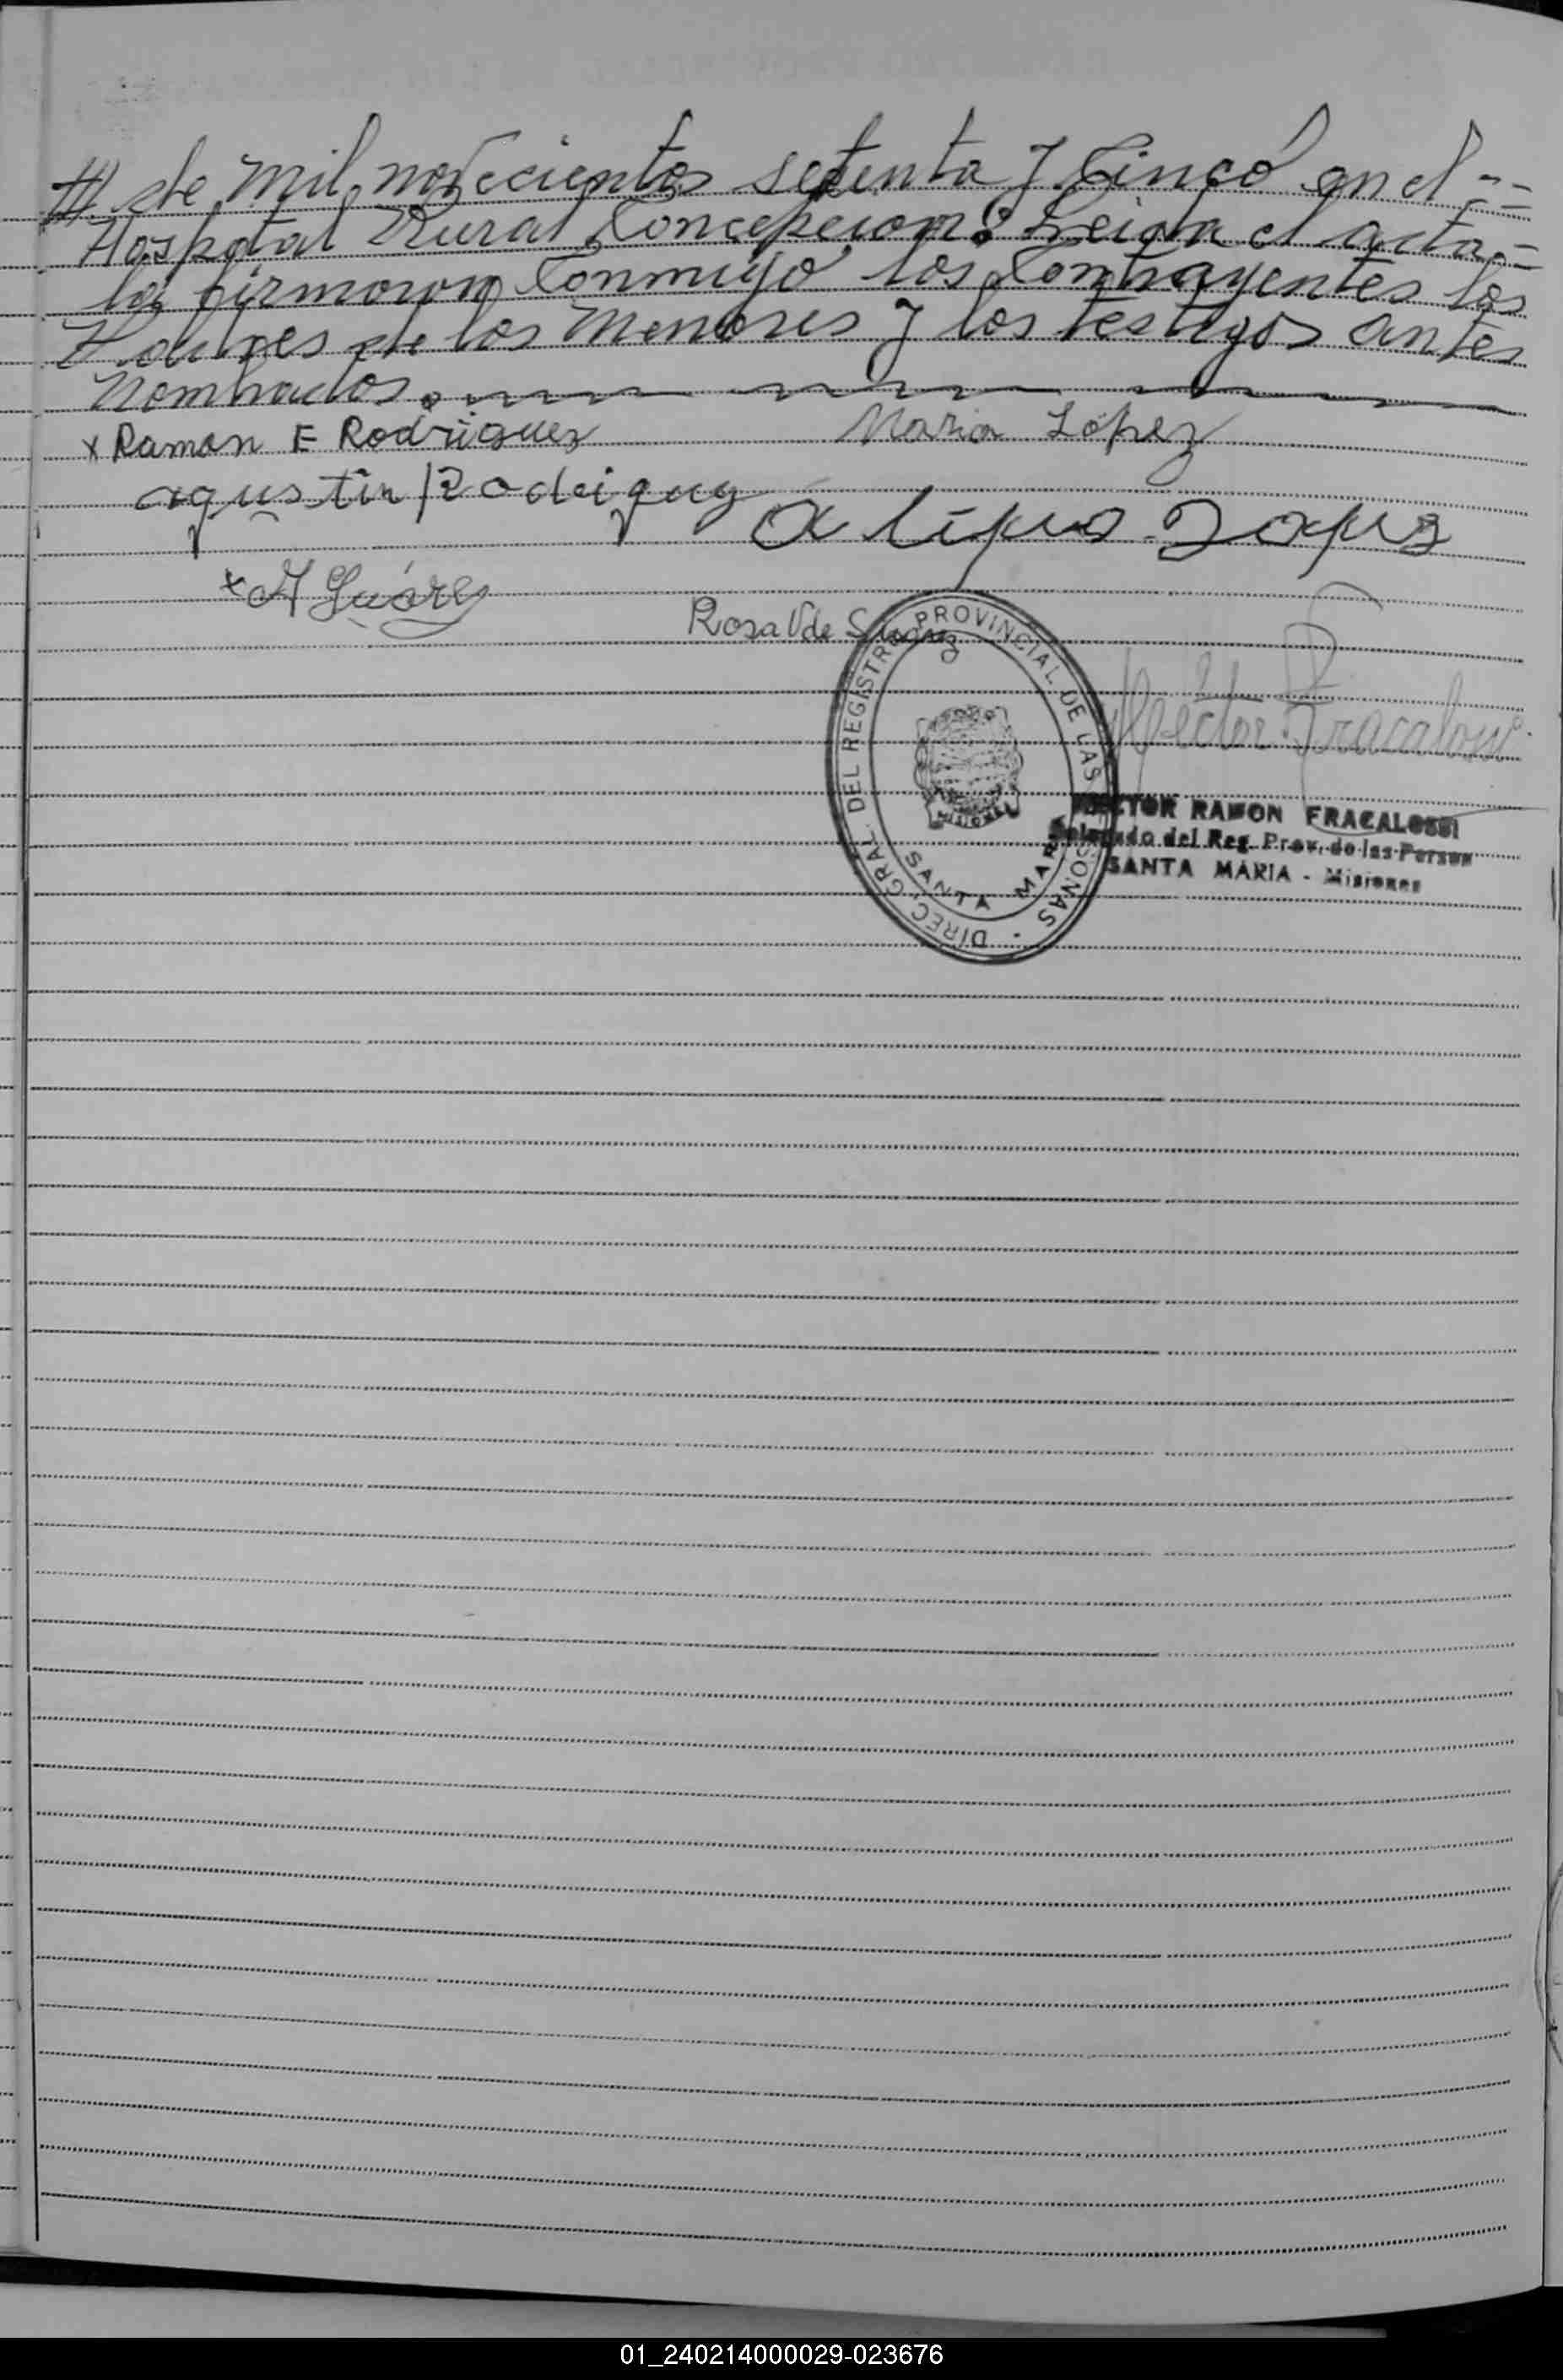 /// de mil novecientos setenta y Cinco en el --
Hospital Rural Concepcion: Leida el acta --
la firmaron Conmigo los Contrayentes los
Padres de los Menores y los testigos antes
Nombrados.
x Ramon E Rodriguez
Maria López
agustin Rodriguez
alipio Lopez
x A Suárez
Rosa V de Suarez
DIREC. GRAL. DEL REGISTRO PROVINCIAL DE LAS PERSONAS
MISIONES
SANTA MARIA
Hector Fracalossi
HECTOR RAMON FRACALOSSI
Delegado del Reg. Prov. de las Person
SANTA MARIA - Misiones
01_240214000029-023676